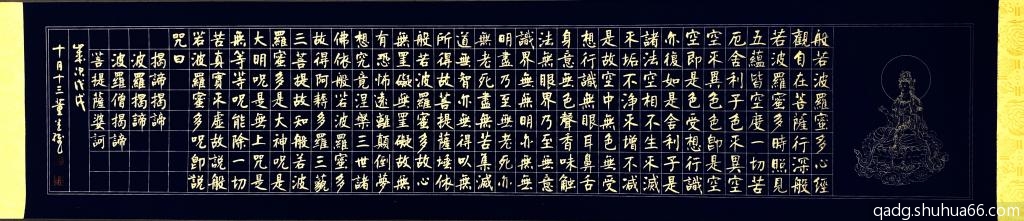 般若波羅蜜多心經
觀自在菩薩行深般
若波羅蜜多時照見
五蘊皆空度一切苦
厄舍利子色不異空
空不異色色即是空
空即是色受想行識
亦復如是舍利子是
諸法空相不生不滅
不垢不淨不增不減
是故空中無色無受
想行識無眼耳鼻舌
身意無色聲香味觸
法無眼界乃至無意
識界無無明亦無無
明盡乃至無老死亦
無老死盡無苦集滅
道無智亦無得以無
所得故菩提薩埵依
般若波羅蜜多故心
無罣礙無罣礙故無
有恐怖遠離顛倒夢
想究竟涅槃三世諸
佛依般若波羅蜜多
故得阿耨多羅三藐
三菩提故知般若波
羅蜜多是大神咒是
大明咒是無上咒是
無等等咒能除一切
苦真實不虛故說般
若波羅蜜多咒即說
咒曰
揭諦揭諦
波羅揭諦
波羅僧揭諦
菩提薩婆訶
歲次戊戌
十月十三董
qadg.shuhua66.com